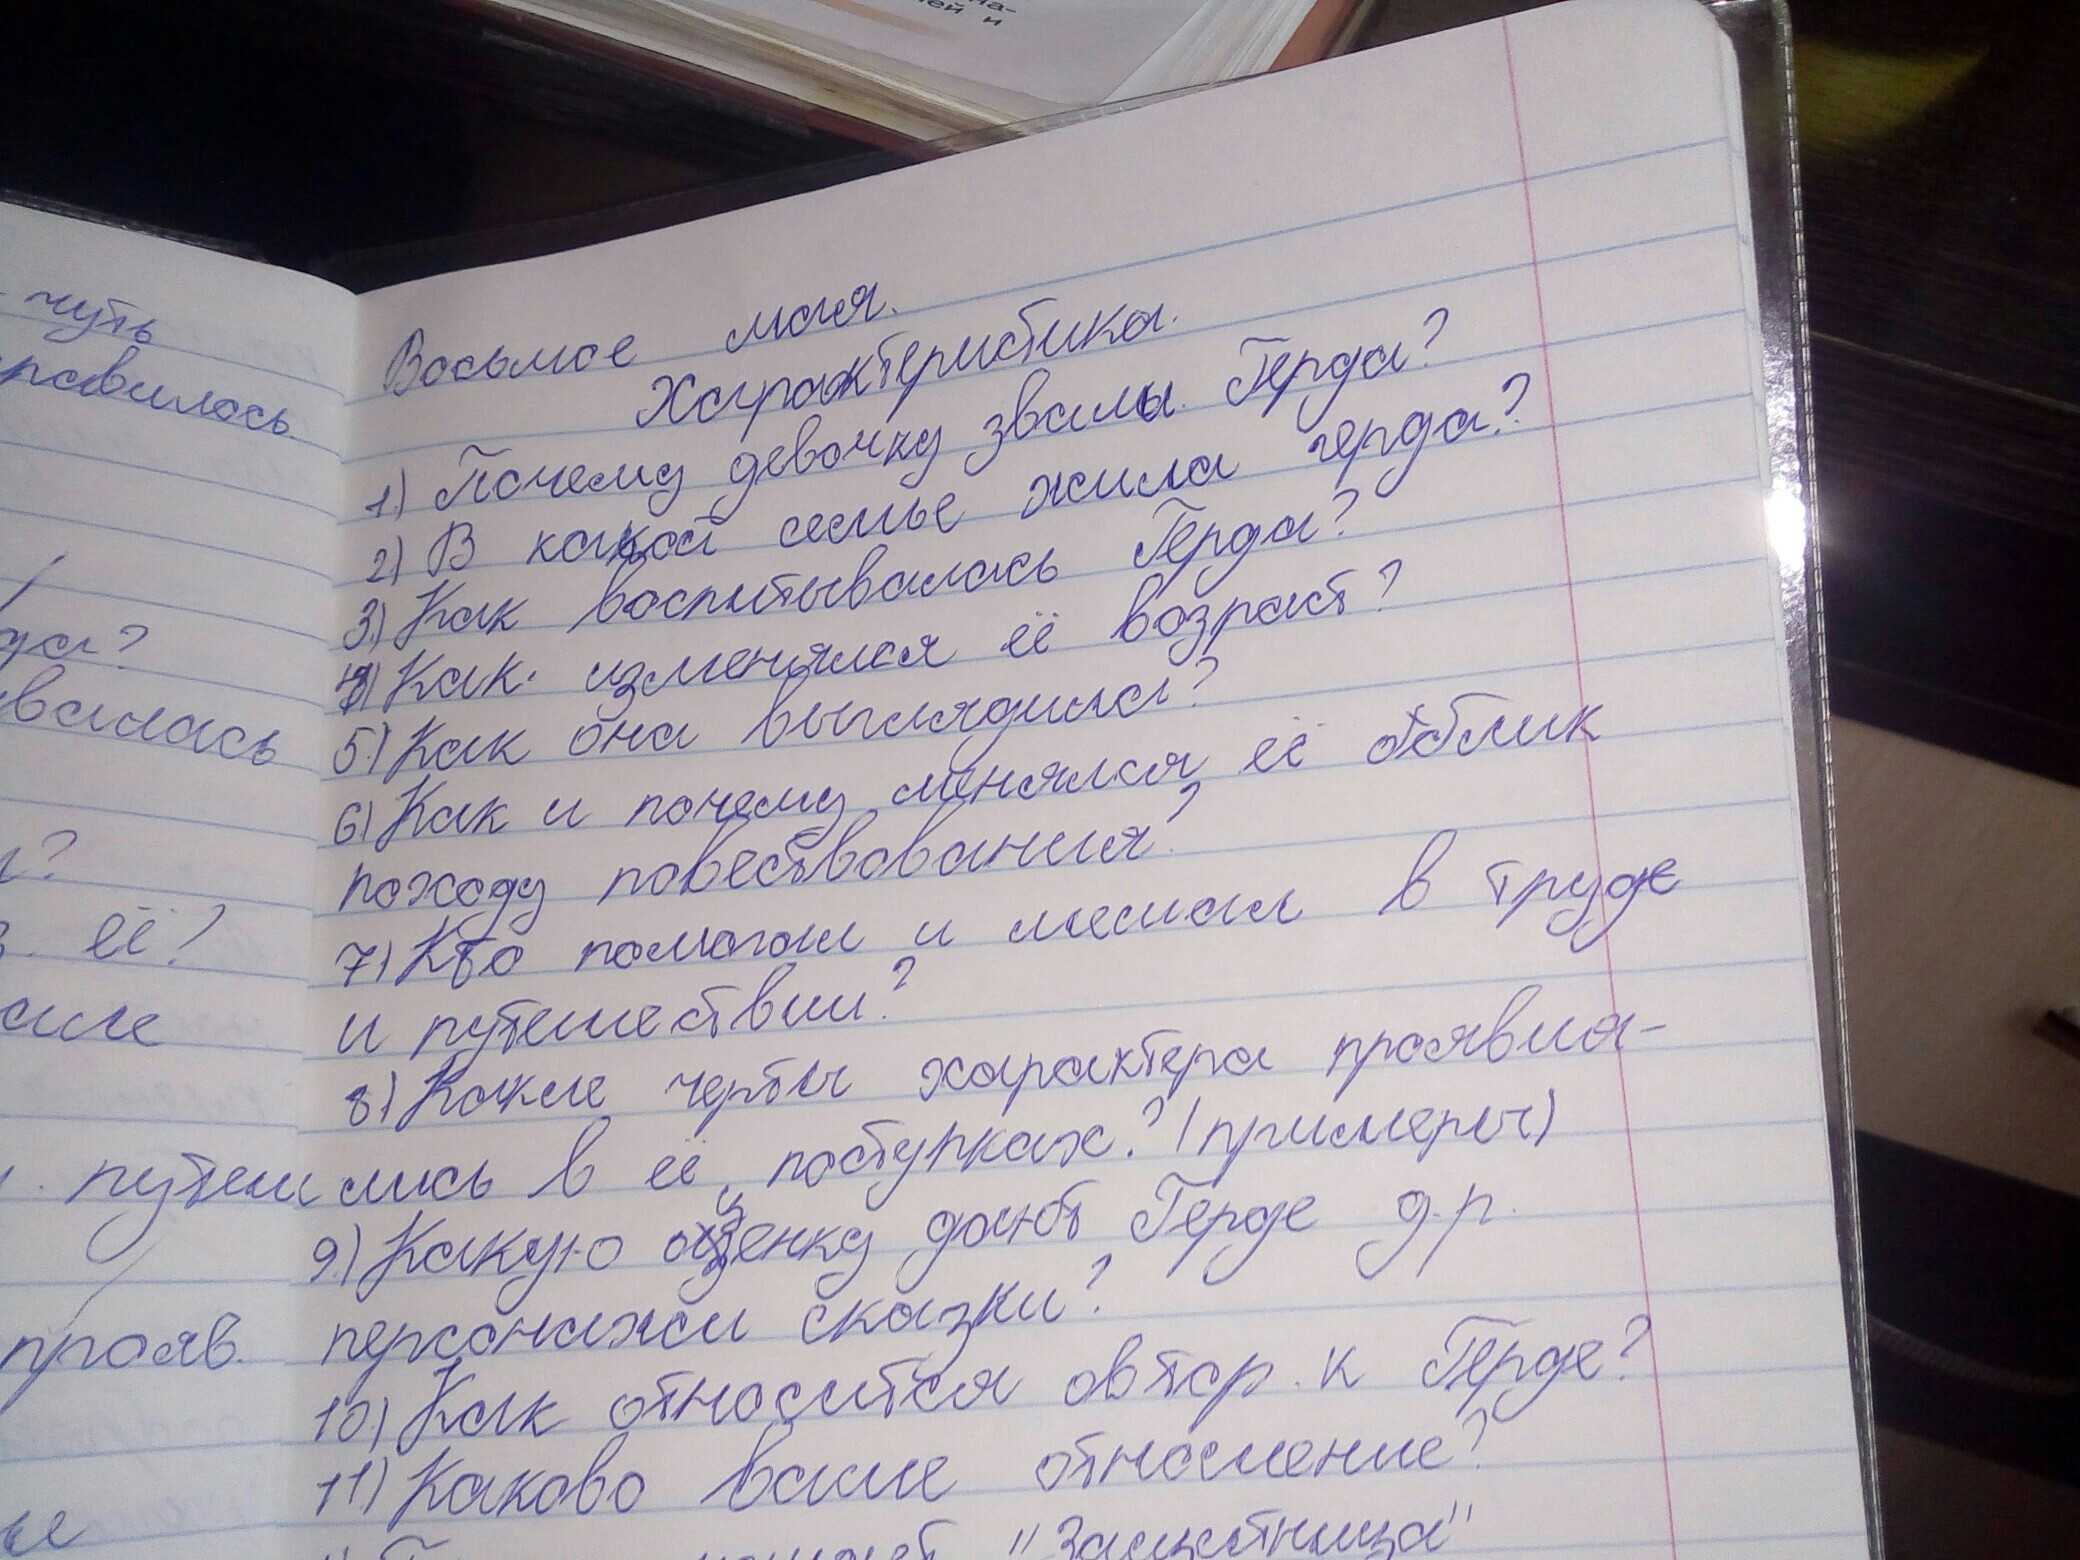 ма-
ей и
чуть
равилось
да?
валась
её?
путеш
прояв.
Восьмое мая.
Характеристика.
1.) Почему девочку звали Герда?
2) В какой семье жила герда?
3) Как воспитывалась Герда?
4) Как изменялся её возраст?
5) Как она выглядила?
6) Как и почему менялся её облик
походу повествования?
7) Кто помогал и мешал в труде
и путешествии?
8) Какие черты характера проявля-
лись в её поступках? (примеры)
9) Какую оценку дают Герде д.р.
персонажи сказки?
10) Как относится автор к Герде?
11) Каково ваше отношение?
"Защитница"